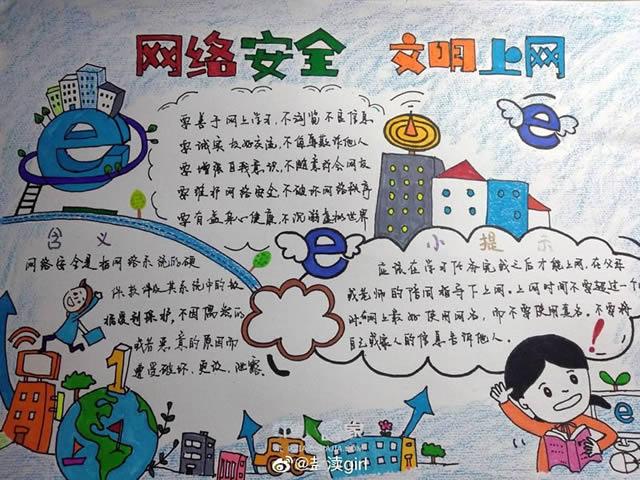 网络安全 文明上网
要善于网上学习,不浏览不良信息
要诚实友好交流,不侮辱欺诈他人
要增强自我意识,不随意约会网友
要维护网络安全,不破坏网络秩序
要有益身心健康,不沉溺虚拟世界
含义
网络安全是指网络系统的硬
件软件及其系统中的数
据受到保护,不因偶然的
或者恶意的原因而
遭受破坏、更改、泄露。
小提示
应该在学习任务完成之后才能上网,在父母
或老师的陪同指导下上网。上网时间不要超过一个
时。网上最好使用网名,而不要使用真名。不要将
自己或家人的信息告诉他人。
e
e
e
e
1
!
@彭渎girl